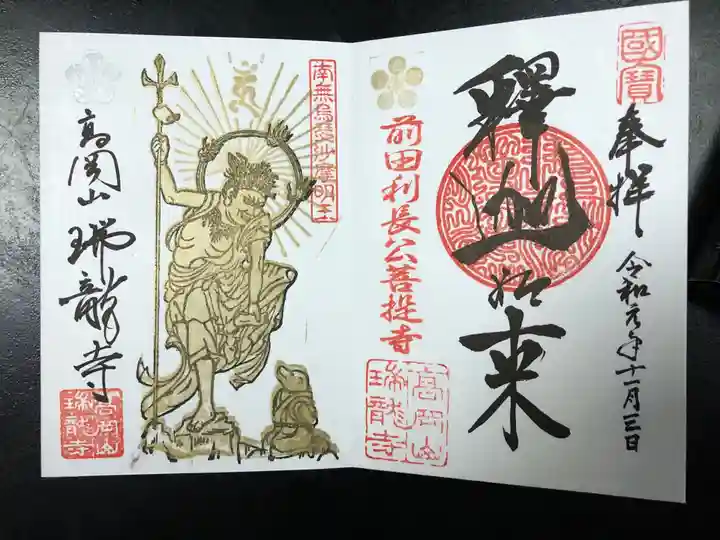 國寶
奉拝
令和元年十一月三日
釋迦如来
前田利長公菩提寺
高岡山
瑞龍寺
南無烏芻沙摩明王
高岡山瑞龍寺
高岡山
瑞龍寺